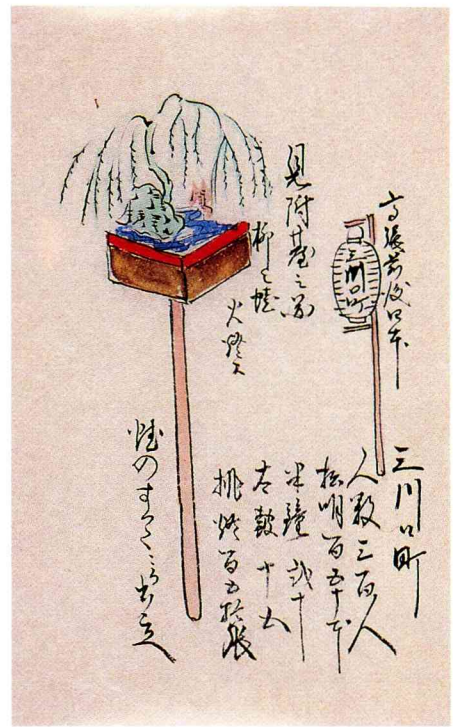 高張前後四本
三川口町
三川口町
人数三百人
松明百五十本
半鐘 弐十
太鼓 十五
挑灯百五拾張
見附臺之図
柳ニ蛙
火燈ス
蛙の